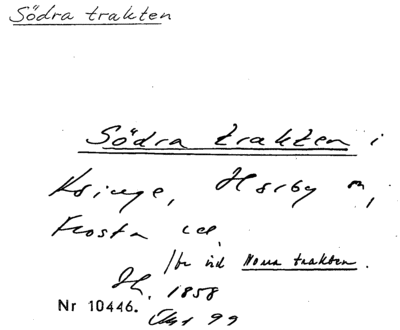 Södra trakten
Södra trakten i
Ksinge, Hörby sn,
Frosta hd,
Jfr vid Norra trakten.
Jb. 1858
Nr 10446.
99